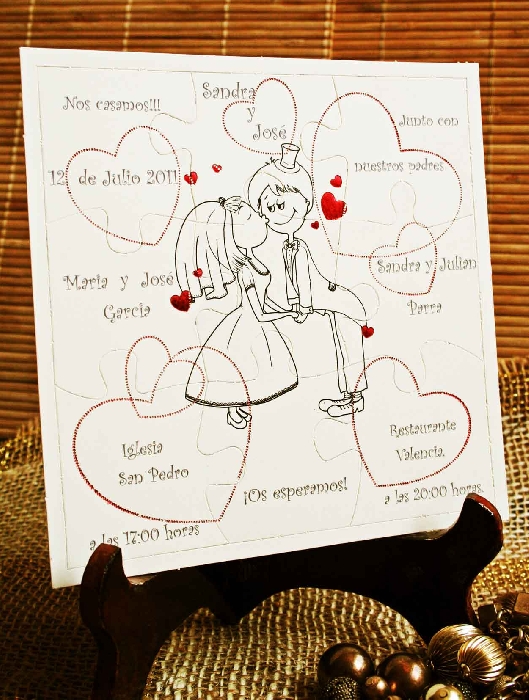 Nos casamos!!!
Sandra
y
José
Junto con
nuestros padres
12 de Julio 2011
Sandra y Julian
Parra
Maria y José
García
Iglesia
San Pedro
a las 17:00 horas
¡Os esperamos!
Restaurante
Valencia,
a las 20:00 horas